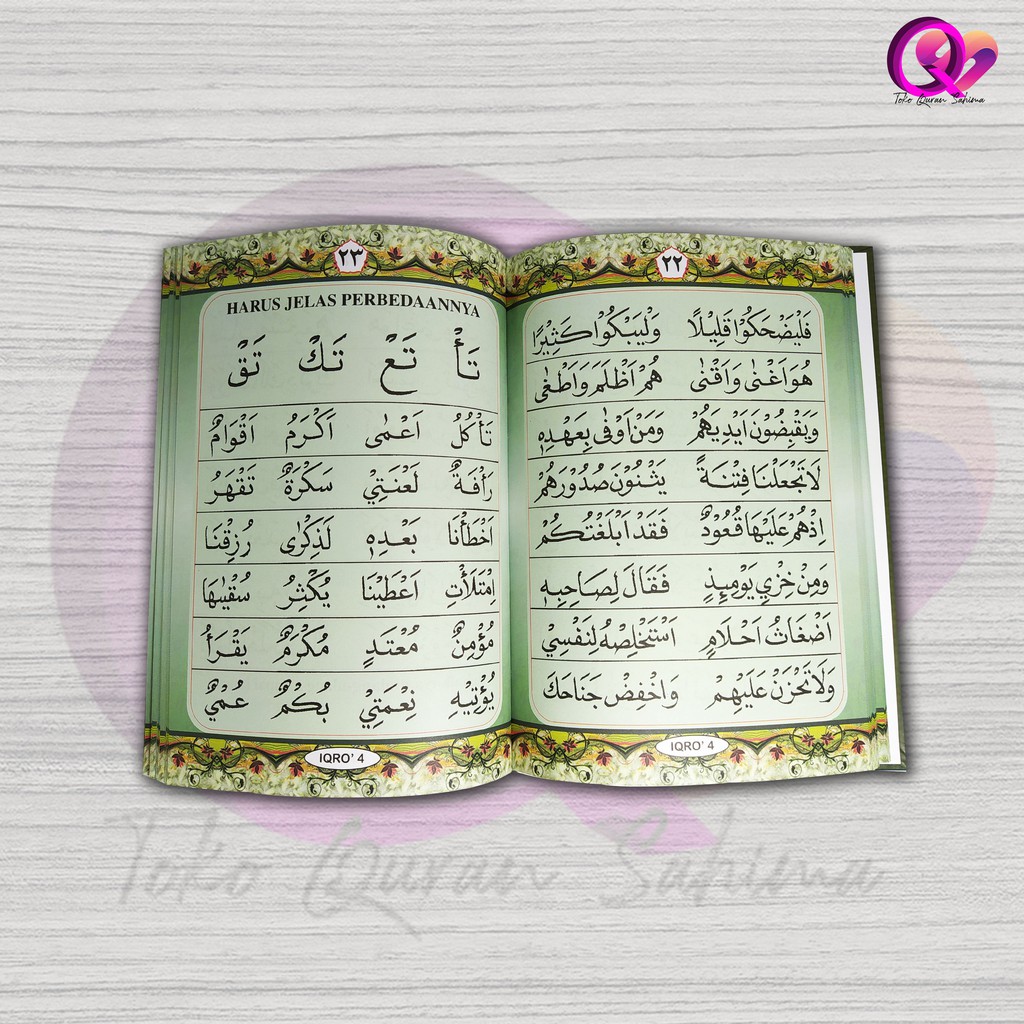 Toko Quran Sahima
٢٢
فَلْيَضْحَكُوْا قَلِيْلًا وَلْيَبْكُوْا كَثِيْرًا
هُوَ اَغْنٰى وَاَقْنٰى هُمْ اَظْلَمَ وَاَطْغٰى
وَيَقْبِضُوْنَ اَيْدِيَهُمْ وَمَنْ اَوْفٰى بِعَهْدِهٖ
لَا تَجْعَلْنَا فِتْنَةً يَثْنُوْنَ صُدُوْرَهُمْ
اِذْهُمْ عَلَيْهَا قُعُوْدٌ فَقَدْ اَبْلَغْتُكُمْ
وَمِنْ خِزْيِ يَوْمِىِٕذٍ فَقَالَ لِصَاحِبِهٖ
اَضْغَاثُ اَحْلَامٍ اَسْتَخْلِصْهُ لِنَفْسِيْ
وَلَا تَحْزَنْ عَلَيْهِمْ وَاخْفِضْ جَنَاحَكَ
IQRO' 4
٢٣
HARUS JELAS PERBEDAANNYA
تَأْ تَعْ تَكْ تَقْ
تَأْكُلُ اَعْمٰى اَكْرَمُ اَقْوَامٌ
رَأْفَةٌ لَعْنَتِيْ سَكْرَةٌ تَقْهَرْ
اَخْطَأْنَا بَعْدِهٖ لَذِكْرٰى رُزِقْنَا
اِمْتَلَأْتِ اَعْطَيْنَا يُكْثِرُ سُقْيٰهَا
مُؤْمِنٌ مُعْتَدٍ مُكْرَمٌ يَقْرَأُ
يُؤْتِيْهِ نِعْمَتِيْ بُكْمٌ عُمْيٌ
IQRO' 4
Toko Quran Sahima